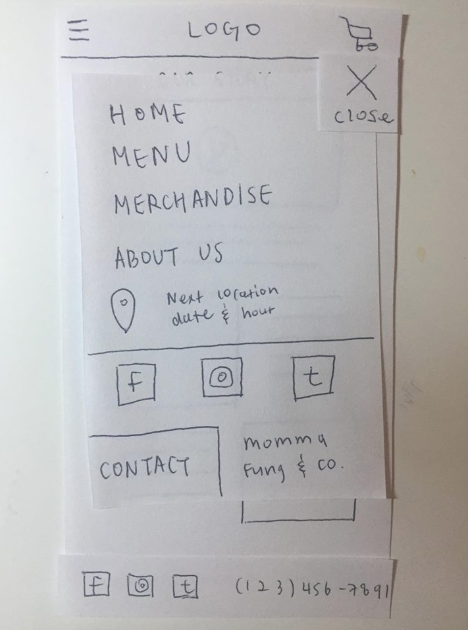 LOGO
X
Close
HOME
MENU
MERCHANDISE
ABOUT US
Next location
date & hour
f
t
CONTACT
momma
Fung & co.
f
t
(123)456-7891